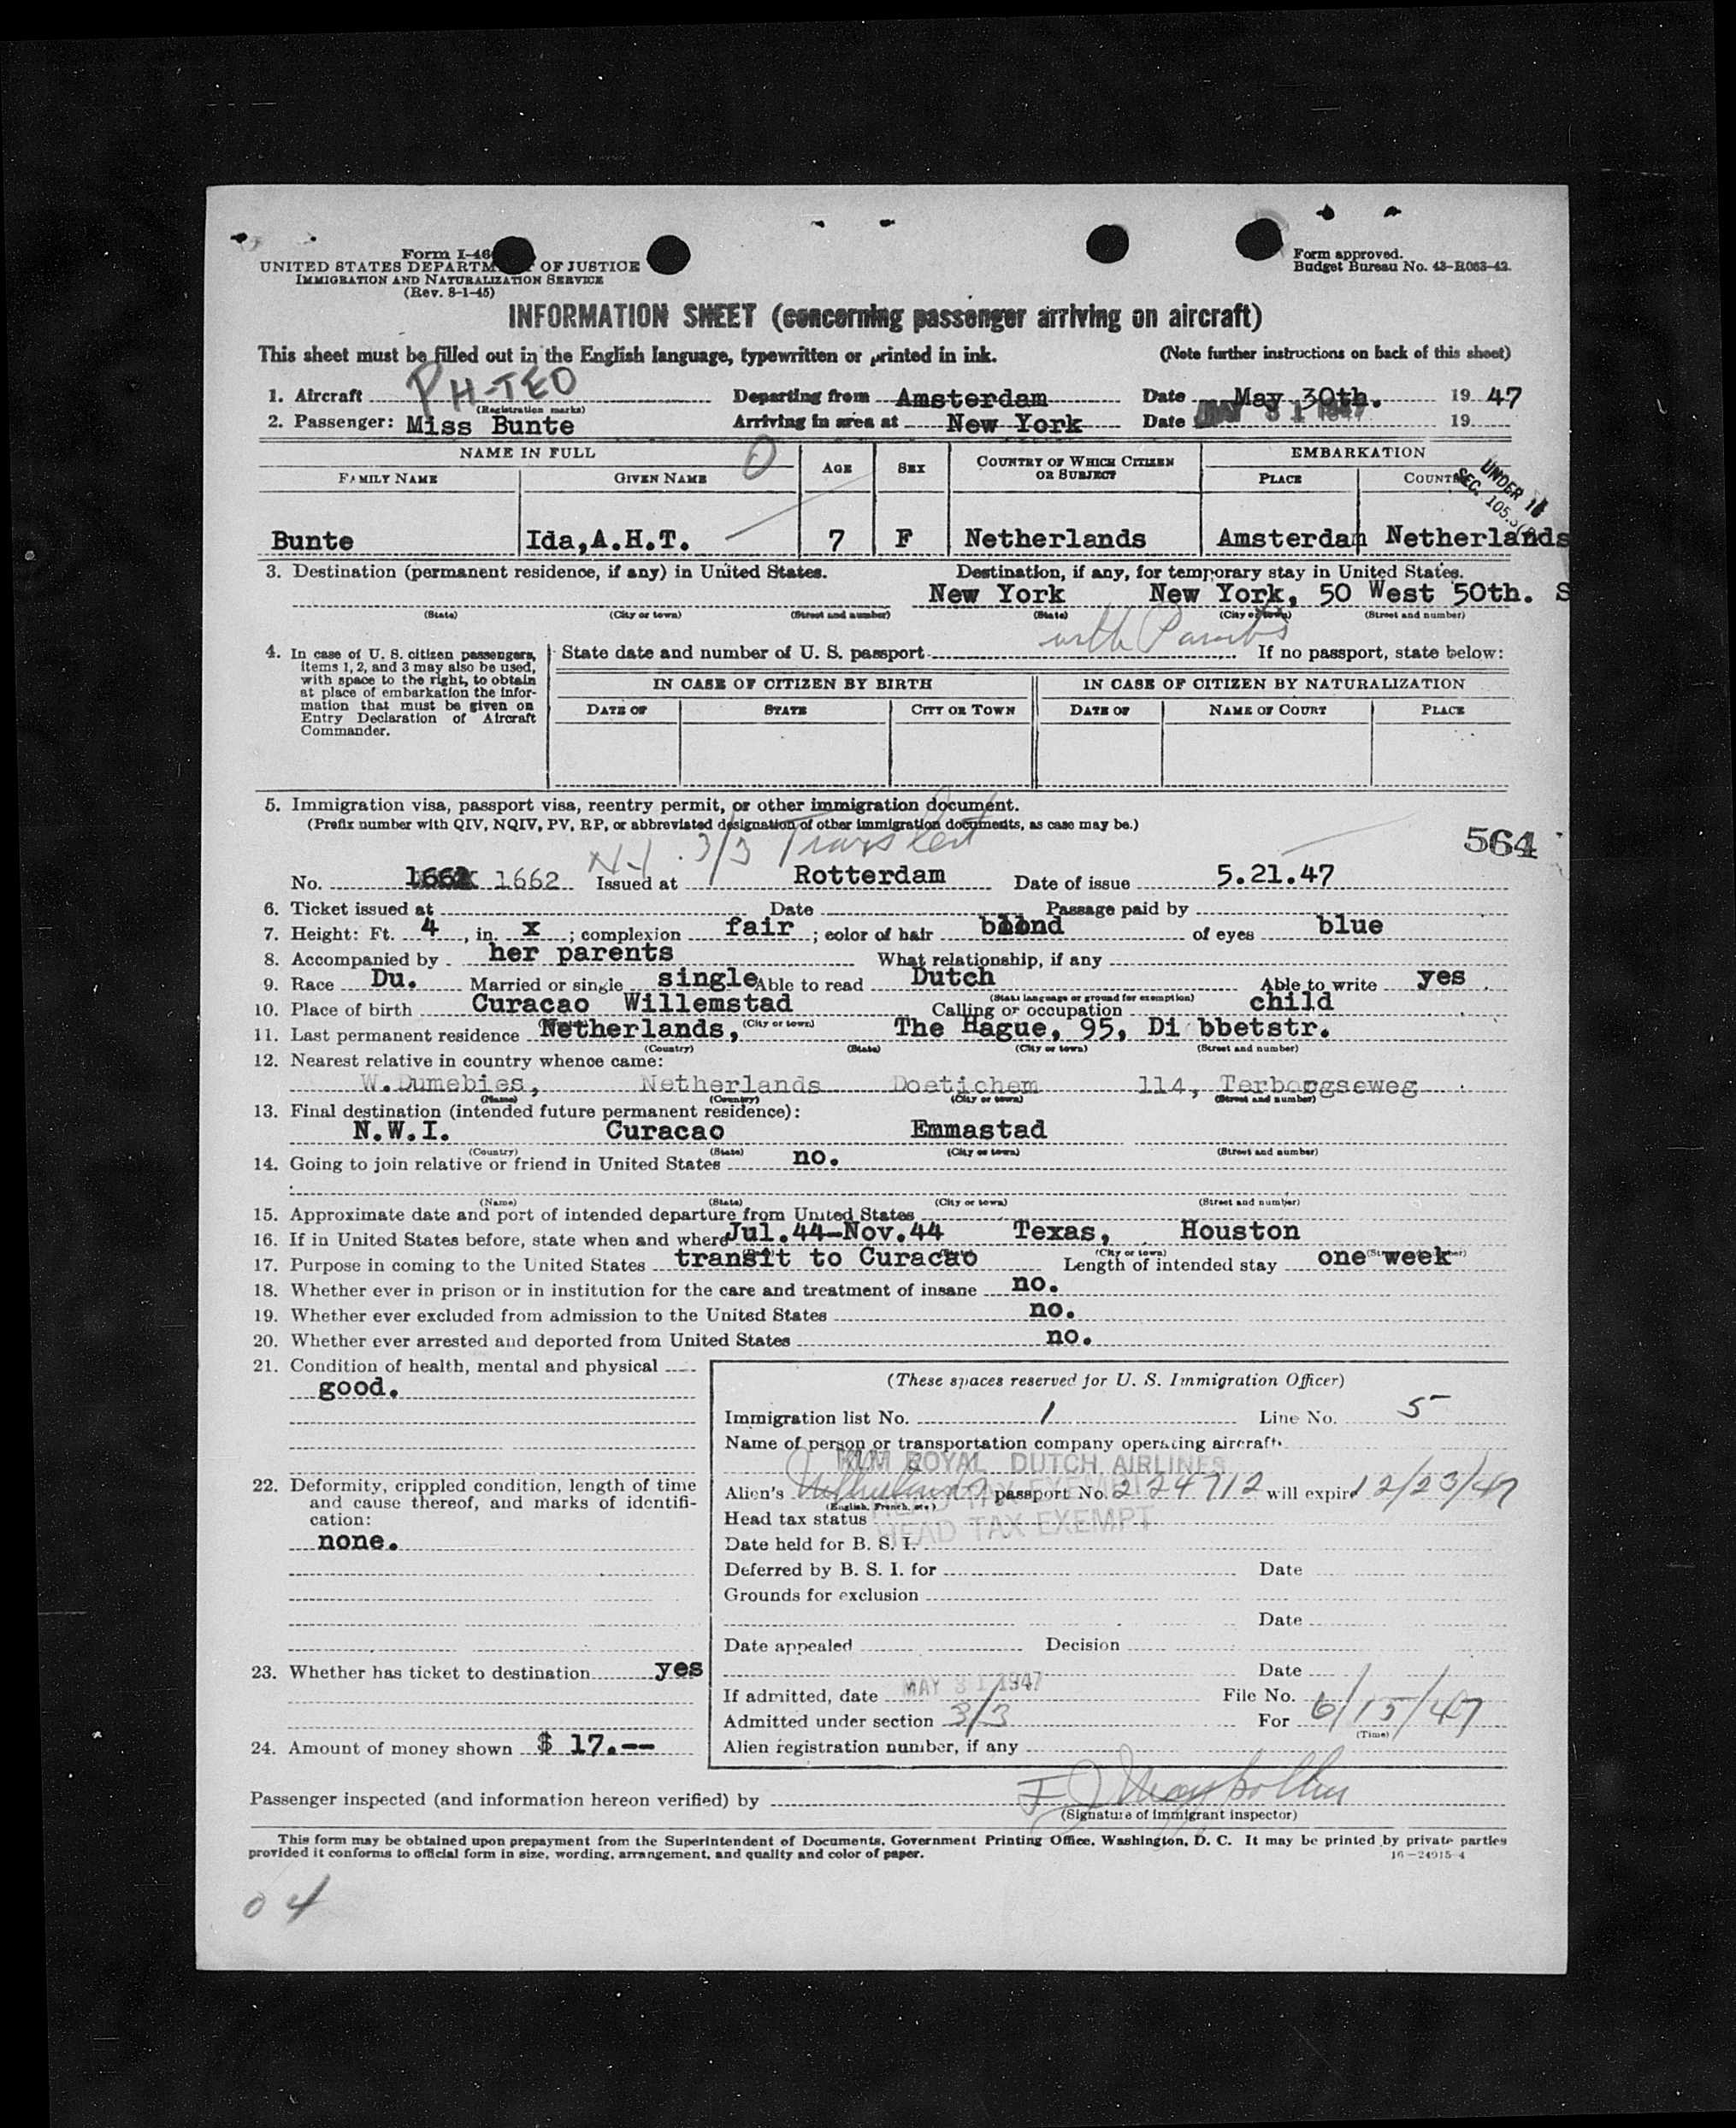 Form I-46
UNITED STATES DEPARTM OF JUSTICE
IMMIGRATION AND NATURALIZATION SERVICE
(Rev. 8-1-45)
Form approved.
Budget Bureau No. 43-R063-42.
INFORMATION SHEET (concerning passenger arriving on aircraft)
This sheet must be filled out in the English language, typewritten or printed in ink. (Note further instructions on back of this sheet)
1. Aircraft PH-TEO Departing from Amsterdam Date May 30th. 19 47
(Registration marks)
2. Passenger: Miss Bunte Arriving in area at New York Date MAY 31 1947 19
NAME IN FULL AGE SEX COUNTRY OF WHICH CITIZEN OR SUBJECT EMBARKATION
FAMILY NAME GIVEN NAME PLACE COUNT
UNDER 16
SEC. 105.
Bunte Ida,A.H.T. 7 F Netherlands Amsterdam Netherlands
3. Destination (permanent residence, if any) in United States. Destination, if any, for temporary stay in United States.
New York New York, 50 West 50th. S
(State) (City or town) (Street and number) (State) (City or town) (Street and number)
with Parents
4. In case of U. S. citizen passengers, items 1, 2, and 3 may also be used, with space to the right, to obtain at place of embarkation the information that must be given on Entry Declaration of Aircraft Commander.
State date and number of U. S. passport If no passport, state below:
IN CASE OF CITIZEN BY BIRTH IN CASE OF CITIZEN BY NATURALIZATION
DATE OF STATE CITY OR TOWN DATE OF NAME OF COURT PLACE
5. Immigration visa, passport visa, reentry permit, or other immigration document.
(Prefix number with QIV, NQIV, PV, RP, or abbreviated designation of other immigration documents, as case may be.)
3/3
564
No. 1662 Issued at Rotterdam Date of issue 5.21.47
6. Ticket issued at Date Passage paid by
7. Height: Ft. 4, in. x; complexion fair; color of hair blond of eyes blue
8. Accompanied by her parents What relationship, if any
9. Race Du. Married or single single Able to read Dutch Able to write yes
(State language or ground for exemption)
10. Place of birth Curacao Willemstad Calling or occupation child
(City or town)
11. Last permanent residence Netherlands, The Hague, 95, Di bbetstr.
(Country) (State) (City or town) (Street and number)
12. Nearest relative in country whence came:
W.Dumebies, Netherlands Doetichem 114, Terborgseweg
(Name) (Country) (City or town) (Street and number)
13. Final destination (intended future permanent residence):
N.W.I. Curacao Emmastad
(Country) (State) (City or town) (Street and number)
14. Going to join relative or friend in United States no.
(Name) (State) (City or town) (Street and number)
15. Approximate date and port of intended departure from United States
16. If in United States before, state when and where Jul.44-Nov.44 Texas, Houston
(City or town)
17. Purpose in coming to the United States transit to Curacao Length of intended stay one week
18. Whether ever in prison or in institution for the care and treatment of insane no.
19. Whether ever excluded from admission to the United States no.
20. Whether ever arrested and deported from United States no.
21. Condition of health, mental and physical
good.
22. Deformity, crippled condition, length of time and cause thereof, and marks of identification:
none.
23. Whether has ticket to destination yes
24. Amount of money shown $ 17.--
(These spaces reserved for U. S. Immigration Officer)
Immigration list No. 1 Line No. 5
Name of person or transportation company operating aircraft
KLM ROYAL DUTCH AIRLINES
Alien's Netherlands passport No. 224712 will expire 12/23/47
(English, French, etc.)
Head tax status
HEAD TAX EXEMPT
Date held for B. S. I.
Deferred by B. S. I. for Date
Grounds for exclusion
Date
Date appealed Decision
Date
If admitted, date MAY 31 1947 File No.
Admitted under section 3/3 For 6/15/47
(Time)
Alien registration number, if any
Passenger inspected (and information hereon verified) by
(Signature of immigrant inspector)
This form may be obtained upon prepayment from the Superintendent of Documents, Government Printing Office, Washington, D. C. It may be printed by private parties
provided it conforms to official form in size, wording, arrangement, and quality and color of paper. 16—24915-4
04